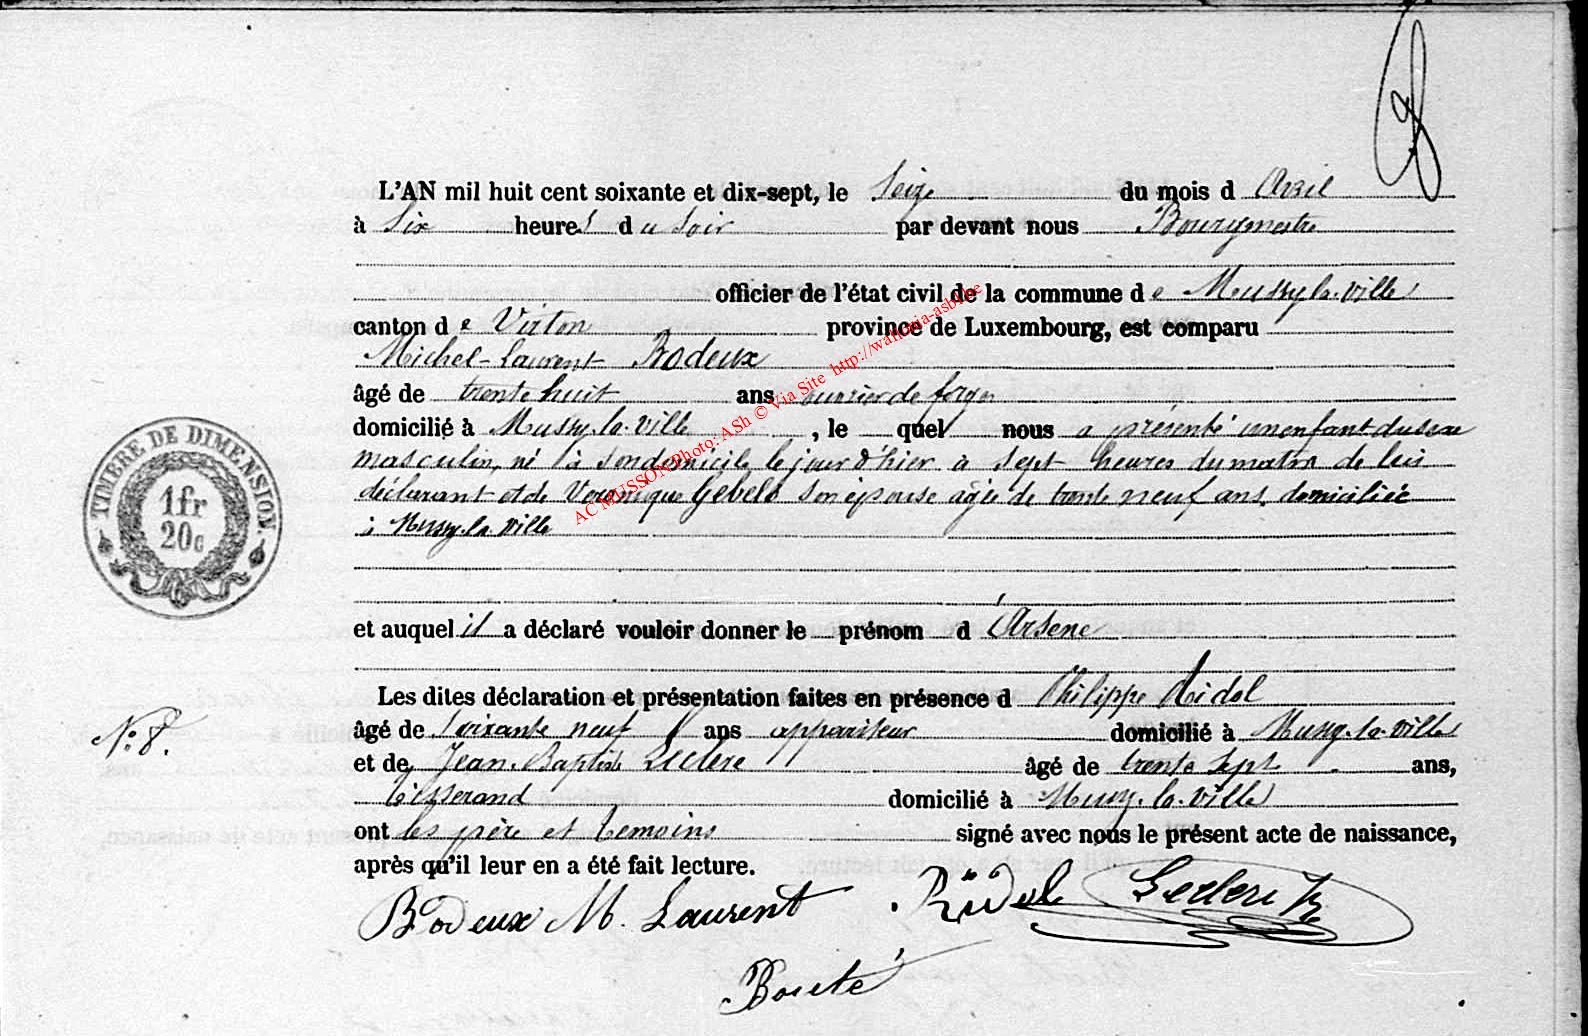 L'AN mil huit cent soixante et dix-sept, le Seize du mois d'Avril
à Six heures du Soir par devant nous Bourgmestre
officier de l'état civil de la commune de Mussy-la-Ville
canton de Virton province de Luxembourg, est comparu
Michel-Laurent Bodeux
âgé de trente huit ans ouvrier de forges
domicilié à Mussy-la-Ville, le quel nous a présenté un enfant du sexe
masculin, né à son domicile le jour d'hier à sept heures du matin de lui
déclarant et de Véronique Gebele son épouse agée de trente neuf ans, domiciliée
à Mussy-la-Ville
et auquel il a déclaré vouloir donner le prénom d'Arsène
Les dites déclaration et présentation faites en présence d Philippe Ridel
âgé de soixante neuf ans appariteur domicilié à Mussy-la-Ville
et de Jean-Baptiste Leclere âgé de trente sept ans,
tisserand domicilié à Mussy-la-Ville
ont les père et témoins signé avec nous le présent acte de naissance,
après qu'il leur en a été fait lecture.
Bodeux M. Laurent Ridel Leclere
Bouté
TIMBRE DE DIMENSION
1fr
20c
No. 8.
AC MUSSON Photo: ASh © Via Site http://wallonia-asbl.be